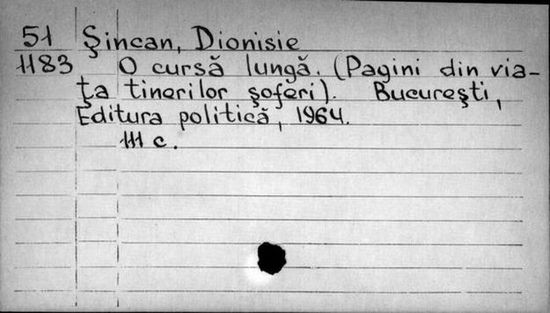 51 Şincan, Dionisie
1183 O cursă lungă. (Pagini din via-
ţa tinerilor şoferi). Bucureşti,
Editura politică, 1964.
111 c.